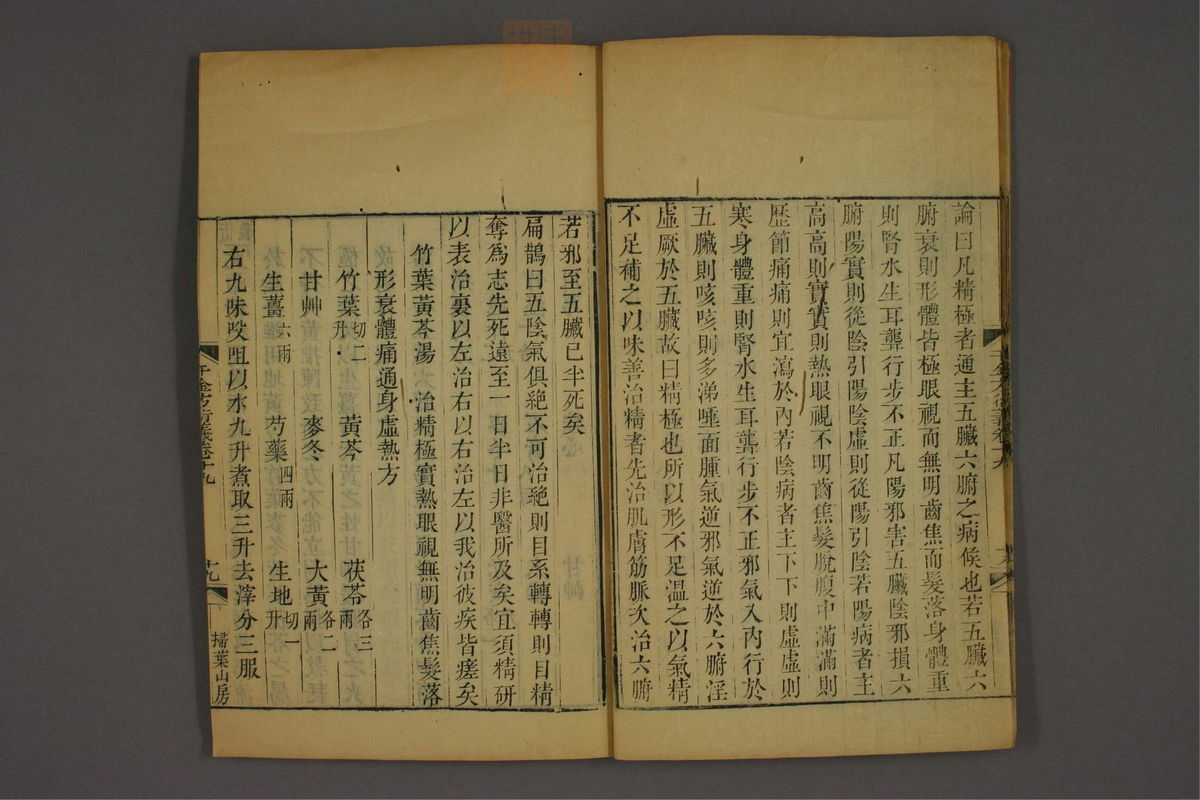 論曰凡精極者通主五臟六腑之病候也若五臟六
腑衰則形體皆極眼視而無明齒焦而髮落身體重
則腎水生耳聾行步不正凡陽邪害五臟陰邪損六
腑陽實則從陰引陽陰虛則從陽引陰若陽病者主
高高則實實則熱眼視不明齒焦髮脫腹中滿滿則
歷節痛痛則宜瀉於內若陰病者主下下則虛虛則
寒身體重則腎水生耳聾行步不正邪氣入內行於
五臟則咳咳則多涕唾面腫氣逆邪氣逆於六腑淫
虛厥於五臟故曰精極也所以形不足溫之以氣精
不足補之以味善治精者先治肌膚筋脈次治六腑
若邪至五臟已半死矣
扁鵲曰五陰氣俱絕不可治絕則目系轉轉則目精
奪為志先死遠至一日半日非醫所及矣宜須精研
以表治裏以左治右以右治左以我治彼疾皆瘥矣
竹葉黃芩湯 治精極實熱眼視無明齒焦髮落
形衰體痛通身虛熱方
竹葉切二升 黃芩 茯苓各三兩
甘艸 麥冬 大黃各二兩
生薑六兩 芍藥四兩 生地切一升
右九味㕮咀以水九升煮取三升去滓分三服
千金方衍義卷十九
十九
掃葉山房